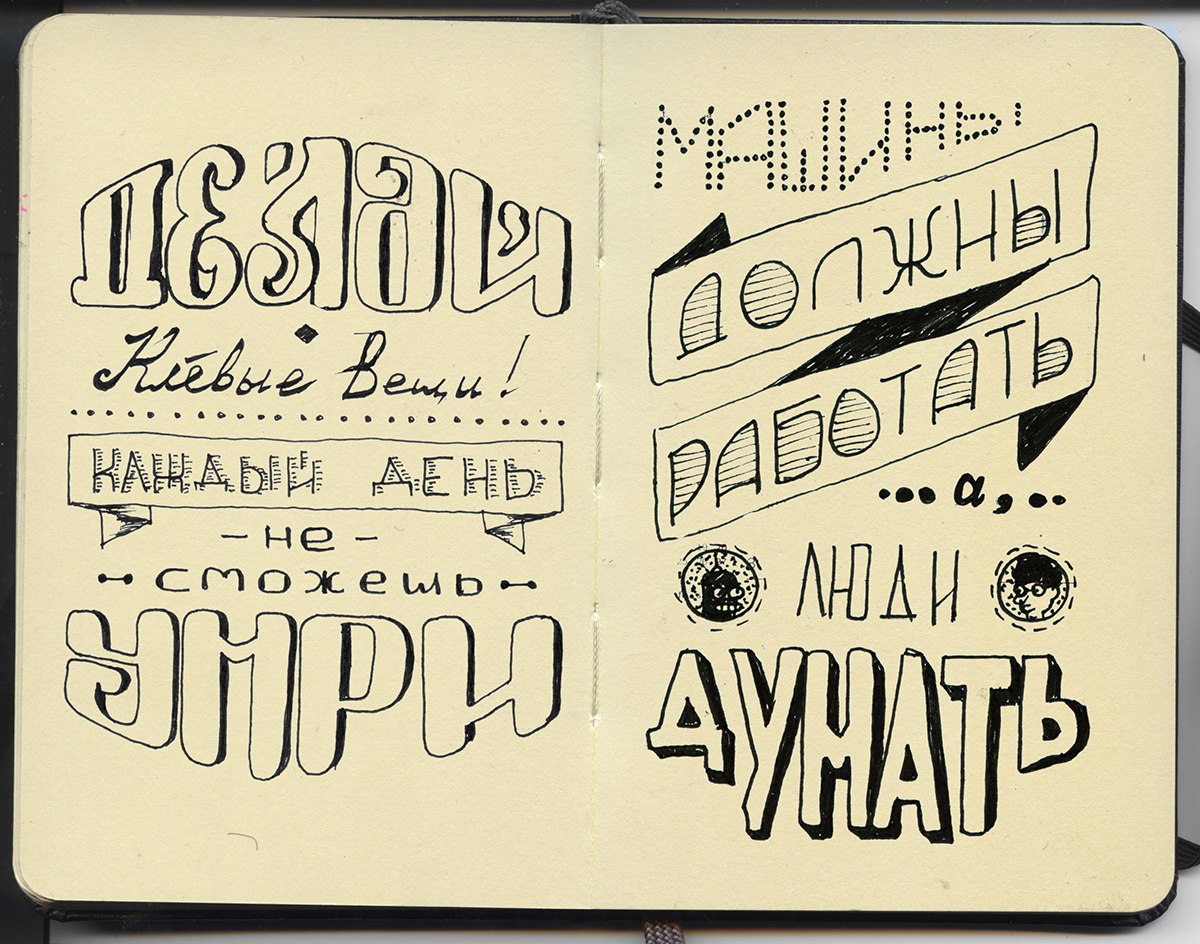 ДЕЛАЙ
Клёвые Вещи!
КАЖДЫЙ ДЕНЬ
- не -
сможешь
УМРИ
МАШИНЫ
ДОЛЖНЫ
РАБОТАТЬ
...а,..
ЛЮДИ
ДУМАТЬ